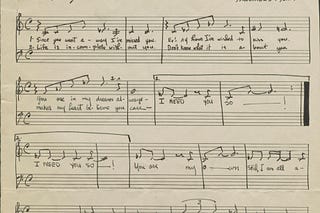 1 Since you went a-way I've missed you Ev'ry day How I've wished to kiss you
2 Life is in-com-plete with-out you Don't know what it is a-bout you
You are in my dreams al-ways I NEED YOU SO !
makes my heart be-have you
I NEED YOU SO ! You are my o-wn Still I am all a-